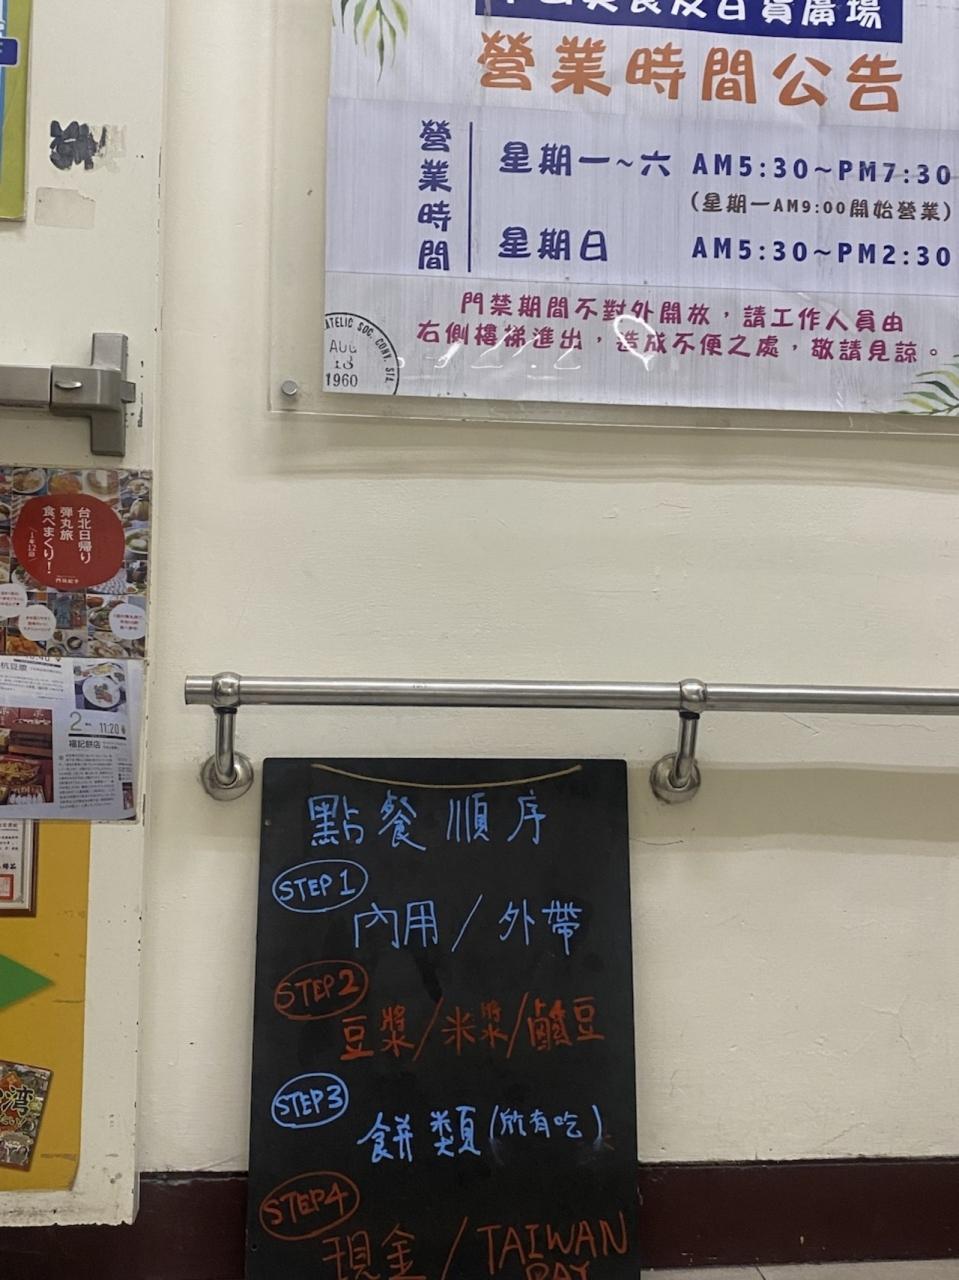 美食及百貨廣場
營業時間公告
營業時間
星期一~六 AM5:30~PM7:30
(星期一AM9:00開始營業)
星期日 AM5:30~PM2:30
門禁期間不對外開放，請工作人員由
右側樓梯進出，造成不便之處，敬請見諒。
AUG
13
1960
台北日帰り
弾丸旅
食べまくり！
2
11:20
福記餅店
點餐順序
STEP1
內用/外帶
STEP2
豆漿/米漿/鹹豆
STEP3
餅類(所有吃)
STEP4
現金/TAIWAN
PAY
湾